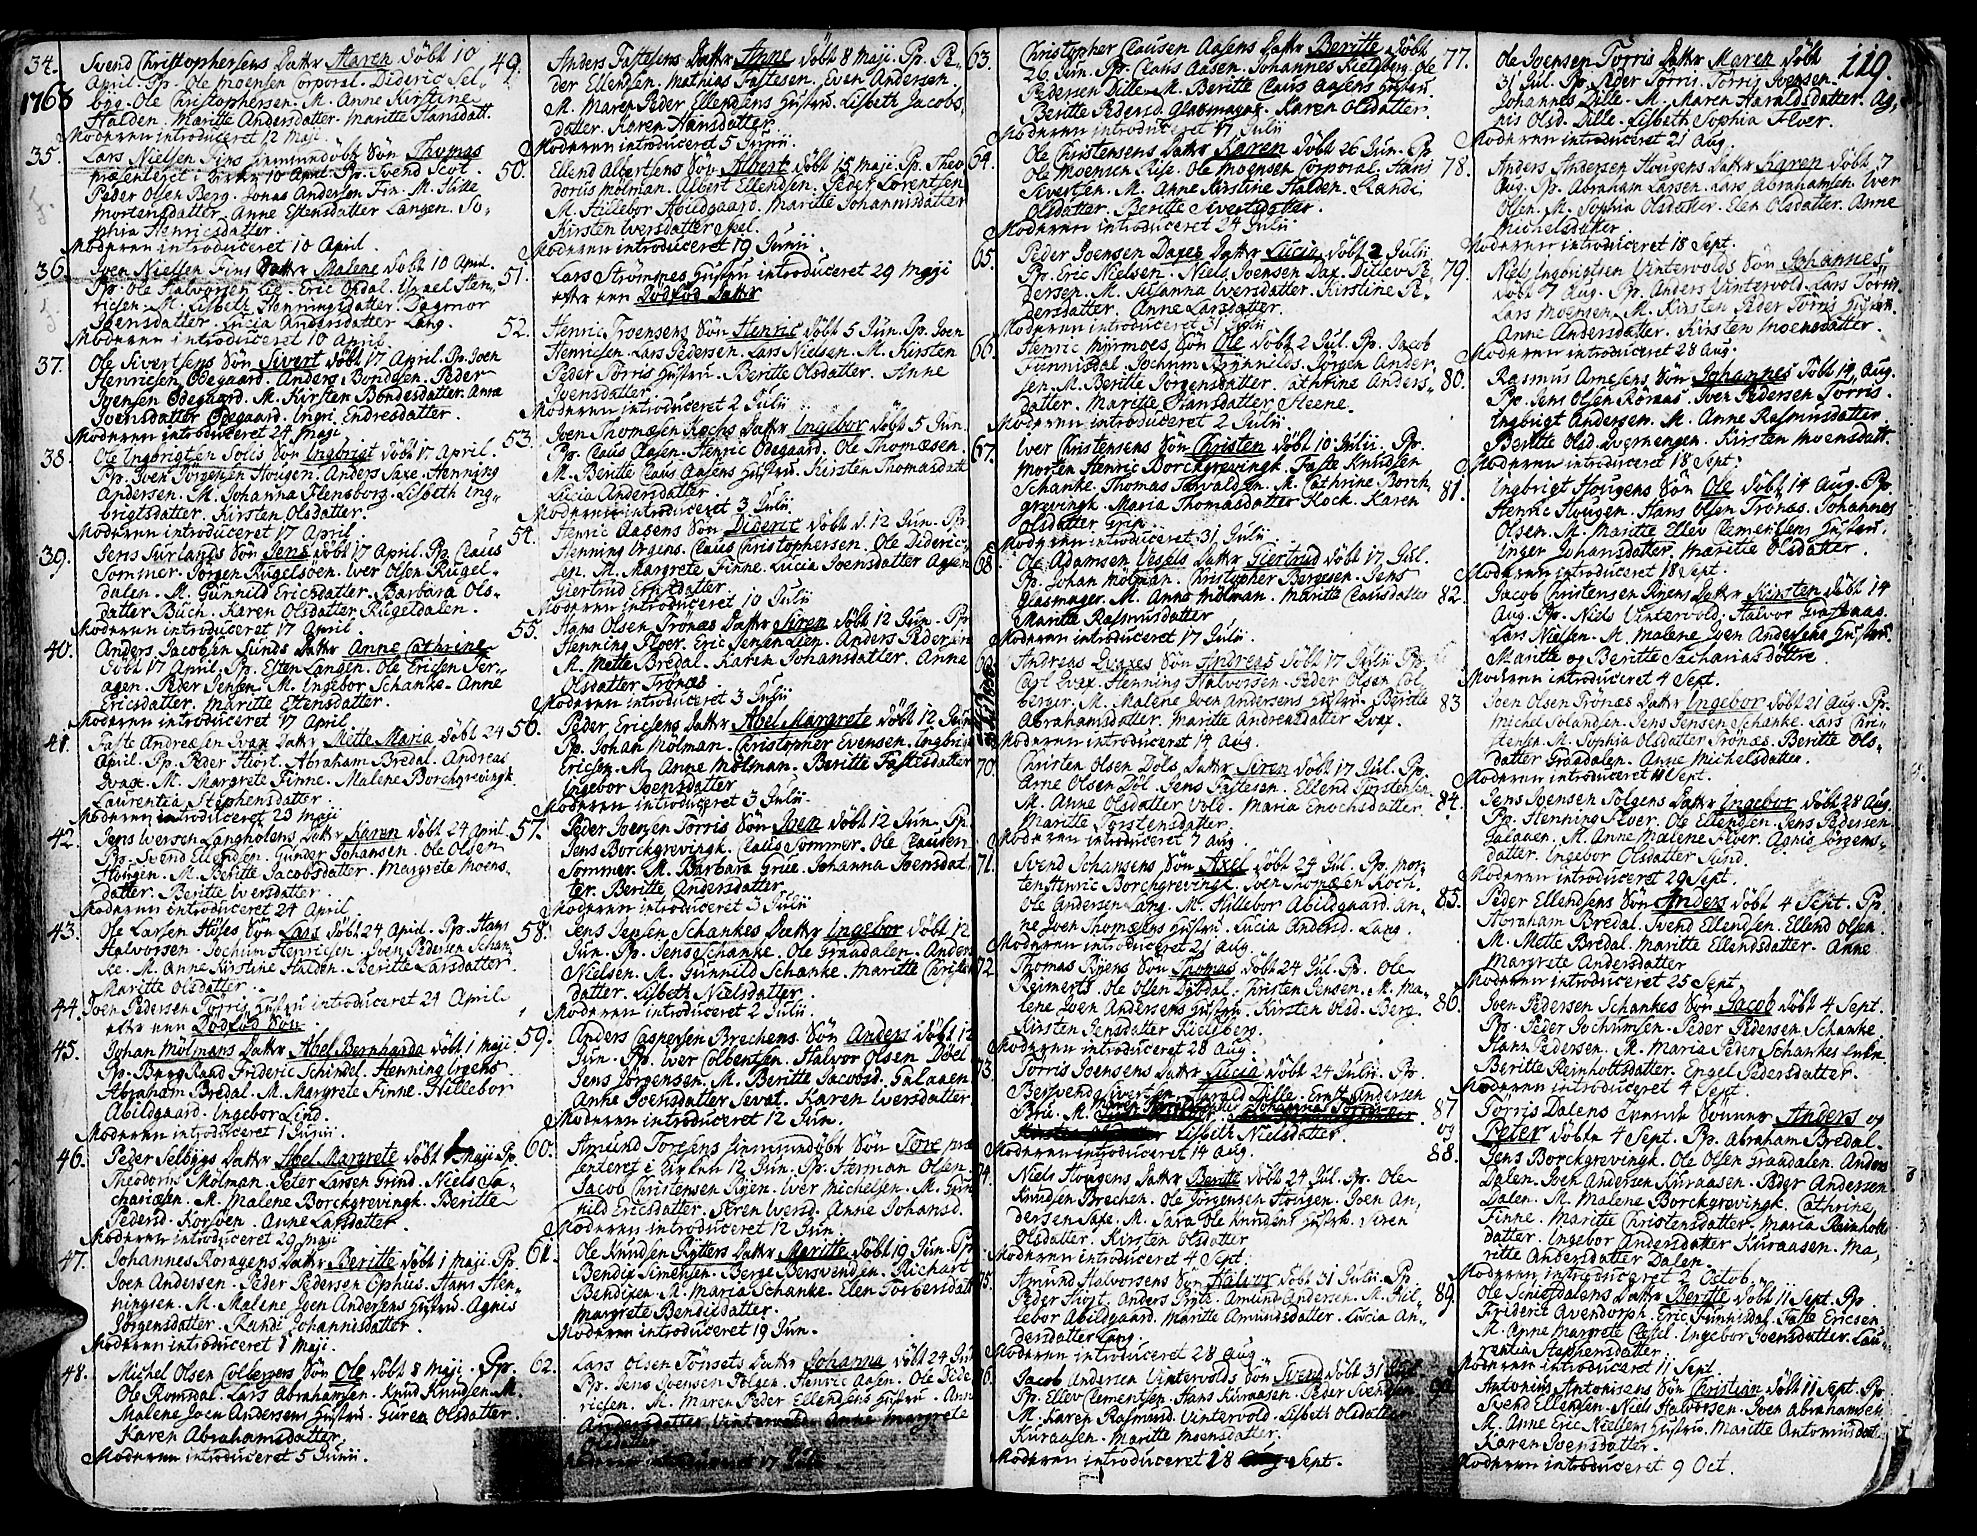 119.
1763
34. Svend Christophersens Datter Maren döbt 10
April. Pp. Ole Moensen Corporal. Dideric Sel-
bog. Ole Christophersen. M. Anne Kirstine
Halden. Maritte Andersdatter. Maritte Hansdatt.
Moderen introduceret 12 Maji
35. Lars Nielsen Fins hiemmedöbt Sön Thomas
præsenteret i Kirken 10 April. Pp. Svend Scot.
Peder Olsen Berg. Jonas Andersen Fin. M. Hilde
Mortensdatter. Anne Estensdatter Langen. So-
phia Henricsdatter.
Moderen introduceret 10 April.
36. Iven Nielsen Fins Datter Malene döbt 10 April.
Pp. Ole Halvorsen Lie. Eric Opdal. Israel Hen-
ricsen. M. Lisbeth Henningsdatter. Dagmor
Joensdatter. Lucia Andersdatter Lang.
Moderen introduceret 10 April
37. Ole Sivertsens Sön Sivert döbt 17 April. Pp. Joen
Henricsen Ödegaard. Anders Bondesen. Peder
Joensen Ödegaard. M. Kirsten Bondesdatter. Anna
Joensdatter Ödegaard. Ingri Endresdatter.
Moderen introduceret 24 Maji
38. Ole Ingbrigtsen Solis Sön Ingbrigt döbt 17 April.
Pp. Joen Jörgensen Hougen. Anders Saxe. Henning
Andersen. M. Johanna Flensborg. Lisbeth Ing-
brigtsdatter. Kirsten Olsdatter.
Moderen introduceret 17 April
39. Jens Aurlands Sön Jens döbt 17 April. Pp. Claus
Sommer. Jörgen Rugelsöen. Iver Olsen Rugel-
dalen. M. Gunnild Ericsdatter. Barbara Ols-
datter Buch. Karen Olsdatter Rugeldalen.
Moderen introduceret 17 April.
40. Anders Jacobsen Lunds Datter Anne Cathrine
döbt 17 April. Pp. Esten Langen. Ole Ericsen Fer-
agen. Peder Jensen. M. Ingebor Schanke. Anne
Ericsdatter. Maritte Estensdatter.
Moderen introduceret 17 April
41. Faste Andreæsen Svax Datter Mette Maria döbt 24
April. Pp. Peder Hiort. Abraham Bredal. Andreas
Svax. M. Margrete Finne. Malene Borchgrevingk.
Laurentia Stephensdatter.
Moderen introduceret 23 Maji
42. Jens Iversen Langholens Datter Karen döbt 24 April.
Pp. Svend Ellendsen. Gunder Johansen. Ole Olsen
Hougen. M. Beritte Jacobsdatter. Margrete Moens-
datter. Beritte Iversdatter
Moderen introduceret 24 April
43. Ole Larsen Höses Sön Lars döbt 24 April. Pp. Hans
Halvorsen. Jochum Henricsen. Joen Pedersen Schan-
ke. M. Anne Kirstine Halden. Beritte Larsdatter.
Maritte Olsdatter.
44. Joen Pedersen Törris Hustru introduceret 24 April
efter een Dödföd Sön
45. Johan Mölmans Datter Abel Bernharda döbt 1 Maji
Pp. Borg Raad Frideric Schindel. Henning Irgens
Abraham Bredal. M. Margrete Finne. Hellebor
Abildgaard. Ingebor Lind.
Moderen introduceret 1 Junii.
46. Peder Selbygs Datter Abel Margrete döbt 1 Maji Pp.
Theodorus Mölman. Peter Larsen Grind. Niels Sa-
chariæsen. M. Malene Borckgrevingk. Beritte
Pedersd. Korsöen. Anne Larsdatter.
Moderen introduceret 29 Maji
47. Johannes Roragens Datter Beritte döbt 1 Maji. Pp.
Joen Andersen. Peder Pedersen Ophus. Hans Hen-
ningsen. M. Malene Joen Andersens Hustru. Agnis
Jörgensdatter. Randi Johannisdatter.
Moderen introduceret 1 Maji.
48. Michel Olsen Colbergs Sön Ole döbt 8 Maji. Pp.
Ole Romdal. Lars Abrahamsen. Knud Knudsen. M.
Malene Joen Andersens Hustru. Guren Olsdatter.
Karen Abrahamsdatter.
Moderen introduceret 5 Junii.
49. Anders Fastesens Datter Anne döbt 8 Maji. Pp. Pe-
der Ellendsen. Mathias Fastesen. Even Andersen.
M. Maren Peder Ellendsens Hustru. Lisbeth Jacobs-
datter. Karen Hansdatter.
Moderen introduceret 5 Junii.
50. Ellend Albertsens Sön Albert döbt 15 Maji. Pp. Theo-
dorus Mölman. Albert Ellendsen. Peder Lorentsen
M. Hillebor Abildgaard. Maritte Johannisdatter
Kirsten Iversdatter Skel.
Moderen introduceret 19 Junii
51. Lars Strömmes Hustru introduceret 29 Maji
efter een Dödföd Datter
52. Henric Troensens Sön Henric döbt 5 Jun. Pp. Joen
Henricsen. Lars Pedersen. Lars Nielsen. M. Kirsten
Peder Törris Hustru. Beritte Olsdatter. Anne
Joensdatter.
Moderen introduceret 2 Julii
53. Joen Thomæsen Kochs Datter Ingebor döbt 5 Jun.
Pp. Claus Aasen. Henric Ödegaard. Ole Thomæsen.
M. Beritte Claus Aasens Hustru. Kirsten Thomasdatt
Lucia Andersdatter.
Moderen introduceret 3 Julii
54. Henric Aasens Sön Dideric döbt d. 12 Jun. Pp.
Henning Irgens. Claus Christophersen. Ole Dideric-
sen. M. Margrete Finne. Lucia Joensdatter Aasen
Giertrud Ericsdatter.
Moderen introduceret 10 Julii
55. Hans Olsen Trönæs Datter Siren döbt 12 Jun. Pp.
Henning Floer. Eric Jensen Lien. Anders Pedersen
M. Mette Bredal. Karen Johansdatter. Anne
Olsdatter Trönæs.
Moderen introduceret 3 Julii
56. Peder Ericsens Datter Abel Margrete döbt 12 Jun
Pp. Johan Mölman. Christopher Evensen. Ingbrigt
Ericsen. M. Anne Mölman. Beritte Fastesdatter
Ingebor Joensdatter
Moderen introduceret 3 Julii.
57. Peder Joensen Törris Sön Joen döbt 12 Jun. Pp.
Jens Borckgrevingk. Claus Sommer. Ole Clausen
Sommer. M. Barbara Grue. Johanna Joensdat-
ter. Beritte Andersdatter
Moderen introduceret 3 Julii
58. Jens Jensen Schankes Datter Ingebor döbt 12
Jun. Pp. Jens Schanke. Ole Graadalen. Anders
Nielsen. M. Gunnild Schanke. Maritte Christens
datter. Lisbeth Nielsdatter.
Moderen introduceret 2 Julii.
59. Anders Caspersen Brechens Sön Anders döbt 12
Jun. Pp. Iver Colbentsen. Halvor Olsen Döel
Jens Jörgensen. M. Beritte Jacobsd. Galaaen.
Anne Joensdatter Sevat. Karen Iversdatter
Moderen introduceret 12 Jun.
60. Amund Toresens hiemmedöbt Sön Tore præ-
senteret i Kirken 12 Jun. Pp. Herman Olsen.
Jacob Christensen Ryen. Iver Michelsen. M. Gun-
nild Ericsdatter. Siren Iversd. Anne Johansd.
Moderen introduceret 12 Jun.
61. Ole Knudsen Rytters Datter Maritte döbt 19 Jun. Pp.
Bendix Simensen. Berge Bersvendsen. Richart
Bendixen. M. Maria Schanke. Elen Torbersdatt
Margrete Bendixdatter.
Moderen introduceret 19 Jun.
62. Lars Olsen Tönsets Datter Johanna döbt 24 Jun
Pp. Jens Joensen Tolgen. Henric Aasen. Ole Pede
ricsen. M. Maren Peder Ellendsens Hustru. Ann
Andersdatter Vintervold. Anne Margrete
Olsdatter
Moderen introduceret 17 Julii
63. Christopher Clausen Aasens Datter Beritte döbt
26 Jun. Pp. Claus Aasen. Johannes Kieldberg. Ole
Pedersen Dille. M. Beritte Claus Aasens Hustru.
Beritte Pedersd. Glasmager. Karen Olsdatter.
Moderen introduceret 17 Julii
64. Ole Christensens Datter Karen döbt 26 Jun. Pp.
Ole Moensen Riise. Ole Moensen Corporal. Hans
Sivertsen. M. Anne Kirstine Halden. Randi
Olsdatter. Beritte Sivertsdatter.
Moderen introduceret 24 Julii
65. Peder Joensen Daxes Datter Lucia döbt 2 Julii
Pp. Eric Nielsen. Niels Joensen Dax. Ditlev Pe-
dersen. M. Susanna Iversdatter. Kirstine Pe-
dersdatter. Anne Larsdatter.
Moderen introduceret 31 Julii
66. Henric Myrmoes Sön Ole döbt 2 Jul. Pp. Jacob
Funnisdal. Jochum Brynnilds. Jörgen Ander-
sen. M. Beritte Jörgensdatter. Cathrine Anders-
datter. Maritte Hansdatter Heene.
Moderen introduceret 2 Julii
67. Iver Christensens Sön Christen döbt 10 Julii. Pp.
Morten Henric Borckgrevingk. Faste Knudsen
Schanke. Thomas Torvaldsen. M. Cathrine Borch-
grevingk. Maria Thomasdatter Kock. Karen
Olsdatter Grin.
Moderen introduceret 31 Julii.
68. Ole Adamsen Vesels Datter Giertrud döbt 17 Jul.
Pp. Johan Mölman. Christopher Bergesen. Jens
Glasmager. M. Anne Mölman. Maritte Clausdatter
Maritte Rasmusdatter
Moderen introduceret 17 Julii.
69. Andreas Svaxes Sön Andreas döbt 17 Julii Pp.
Carl Svax. Henning Halvorsen. Peder Olsen Col-
berger. M. Malene Joen Andersens Hustru. Beritte
Abrahamsdatter. Maritte Andreasdatter Svax.
Moderen introduceret 14 Aug.
70. Christen Olsen Döls Datter Siren döbt 17 Jul. Pp.
Arne Olsen Döl. Jens Fastesen. Ellend Torstensen
M. Anne Olsdatter Vold. Maria Enochsdatter.
Maritte Torstensdatter
Moderen introduceret 7 Aug.
71. Svend Johansens Sön Axel döbt 24 Jul. Pp. Mor-
ten Henric Borckgrevingk. Joen Thomæsen Koch.
Ole Andersen Lang. M. Hillebor Abildgaard. An-
ne Joen Thomæsens Hustru. Lucia Andersd. Lang.
Moderen introduceret 21 Aug.
72. Thomas Ryens Sön Thomas döbt 24 Jul. Pp. Ole
Reimerts. Ole Olsen Dybdal. Christen Jensen. M. Ma-
lene Joen Andersens Hustru. Kirsten Olsd. Berg.
Kirsten Jensdatter Kieldberg.
Moderen introduceret 28 Aug.
73. Törris Joensens Datter Lucia döbt 24 Julii. Pp.
Bersvend Sivertsen. Harald Dille. Ernst Andersen
Brue. M.
Lisbeth Nielsdatter.
Moderen introduceret 14 Aug.
74. Niels Hougens Datter Beritte döbt 24 Jul. Pp. Ole
Knudsen Brechen. Ole Jörgensen Hougen. Joen An-
dersen Saxe. M. Sara Ole Knudsens Hustru. Siren
Olsdatter. Kirsten Olsdatter
Moderen introduceret 4 Sept.
75. Amund Halvorsens Sön Halvor döbt 31 Julii. Pp.
Peder Hiort. Anders Prytz. Amund Andersen. M. Hil-
lebor Abildgaard. Maritte Amundsdatter. Lucia An-
dersdatter Lang.
Moderen introduceret 28 Aug
Jacob Andersen Vintervolds Sön Svend döbt 31 Jul.
Pp. Ellev Clementsen. Hans Kuraasen. Peder Svendsen
M. Karen Rasmusd. Vintervold. Lisbeth Olsdatter
Kuraasen. Maritte Moensdatter.
Moderen introduceret 18 Sept.
77. Ole Joensen Törris Datter Maren döbt
31 Jul. Pp. Peder Törris. Törris Joensen.
Johannes Dille. M. Maren Haraldsdatter. Ag-
nis Olsd. Dille. Lisbeth Sophia Floer.
Moderen introduceret 21 Aug.
78. Anders Andersen Hougens Datter Karen döbt 7
Aug. Pp. Abraham Larsen. Lars Abrahamsen. Iver
Olsen. M. Sophia Olsdatter. Elen Olsdatter. Anne
Michelsdatter
Moderen introduceret 18 Sept.
79. Niels Ingbrigtsen Vintervolds Sön Johannes
döbt 7 Aug. Pp. Anders Vintervold. Lars Törris
Lars Moensen. M. Kirsten Peder Törris Hustru.
Anne Andersdatter. Kirsten Moensdatter.
Moderen introduceret 28 Aug.
80. Rasmus Arnesens Sön Johannes döbt 14 Aug.
Pp. Jens Olsen Röraas. Iver Pedersen Törris.
Ingbrigt Andersen. M. Anne Rasmusdatter
Beritte Olsd. Evernengen. Kirsten Moensdatt.
Moderen introduceret 18 Sept.
81. Ingbrigt Hougens Sön Ole döbt 14 Aug. Pp.
Henric Hougen. Hans Olsen Trönæs. Johannes
Olsen. M. Maritte Ellev Clementsens Hustru.
Inger Johansdatter. Maritte Olsdatter.
Moderen introduceret 18 Sept.
82. Jacob Christensen Ryens Datter Kirsten döbt 14
Aug. Pp. Niels Vintervold. Halvor Graftaas.
Lars Nielsen. M. Malene Joen Andersens Hustru.
Maritte og Beritte Sachariasdöttre.
Moderen introduceret 4 Sept.
83. Joen Olsen Trönæs Datter Ingebor döbt 21 Aug. Pp.
Michel Solandsen. Jens Jensen Schanke. Lars Chri-
stensen. M. Sophia Olsdatter Trönæs. Beritte Ols-
datter Graadalen. Anne Michelsdatter.
Moderen introduceret 11 Sept.
84. Jens Joensen Tolgens Datter Ingebor döbt 28 Aug.
Pp. Henning Floer. Ole Ellendsen. Jens Pedersen
Galaaen. M. Anne Malene Floer. Agnis Jörgens-
datter. Ingebor Olsdatter Lund.
Moderen introduceret 29 Sept.
85. Peder Ellendsens Sön Anders döbt 4 Sept. Pp.
Abraham Bredal. Svend Ellendsen. Ellend Olsen
M. Mette Bredal. Maritte Ellendsdatter. Anne
Margrete Andersdatter
Moderen introduceret 25 Sept
86. Joen Pedersen Schankes Sön Jacob döbt 4 Sept.
Pp. Peder Jochumsen. Peder Pedersen Schanke
Hans Pedersen. M. Maria Peder Schankes Enke.
Beritte Reinholtsdatter. Engel Pedersdatter.
Moderen introduceret 4 Sept.
87 og 88. Törris Dalens Tvende Sönner Anders og
Peter döbte 4 Sept. Pp. Abraham Bredal.
Jens Borckgrevingk. Ole Olsen Graadalen. Anders
Dalen. Joen Andersen Kuraasen. Peder Andersen
Dalen. M. Malene Borckgrevingk. Cathrine
Finne. Maritte Christensdatter. Maria Reinholts
datter. Ingebor Andersdatter Kuraasen. Ma-
ritte Andersdatter Dalen.
Moderen introduceret 2 Octob.
89. Ole Schistdalens Datter Beritte döbt 11 Sept. Pp.
Frideric Avendorph. Eric Funnisdal. Faste Ericsen
M. Anne Margrete Cassel. Ingebor Joensdatter. Lau-
rentia Stephensdatter.
Moderen introduceret 11 Sept
90. Antonius Antonisens Sön Christian döbt 11 Sept. Pp.
Svend Ellendsen. Niels Halvorsen. Joen Abrahamsen
M. Anne Eric Nielsens Hustru. Maritte Antonisdat.
Karen Joensdatter.
Moderen introduceret 9 Oct.